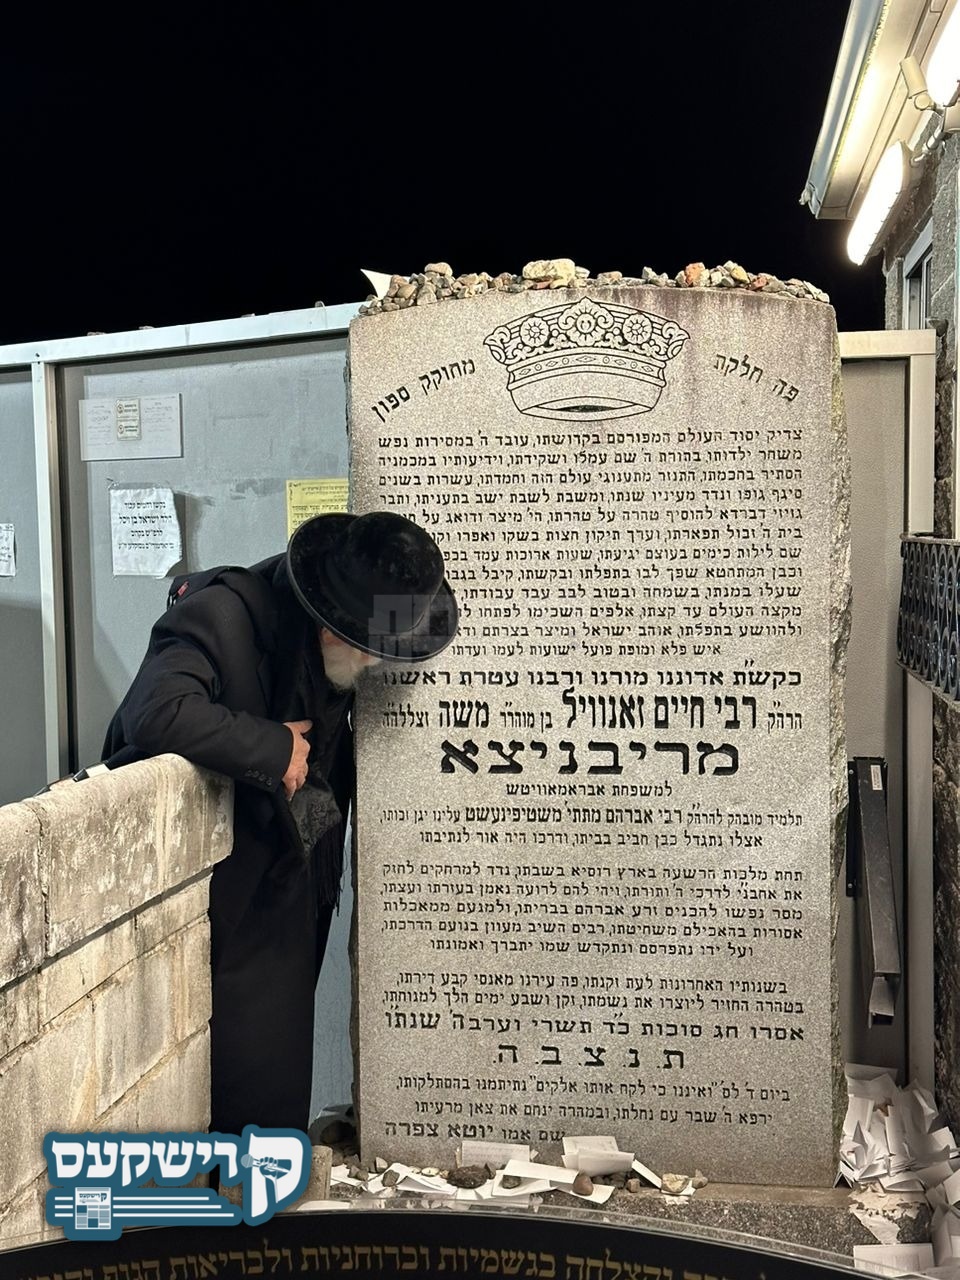 פה חלקת
מחוקק ספון
צדיק יסוד העולם המפורסם בקדושתו, עובד ה' במסירות נפש
משחר ילדותו, בתורת ה' שם עמלו ושקידתו, וידיעותיו במכמניה
הסתיר בחכמתו, התנזר מתענוגי עולם הזה וחמדתו, עשרות בשנים
סיגף גופו ונדד מעיניו שנתו, ומשבת לשבת ישב בתעניתו, ותבר
גזיזי דברדא להוסיף טהרה על טהרתו, הי' מיצר ודואג על
בית ה' זבול תפארתו, וערך תיקון חצות בשקו ואפרו
שם לילות כימים בעוצם יגיעתו, שעות ארוכות עמד
וכבן המתחטא שפך לבו בתפלתו ובקשתו, קיבל
שעלו במנתו, בשמחה ובטוב לבב עבד עבודתו,
מקצה העולם עד קצתו, אלפים השכימו לפתחו
ולהוושע בתפלתו, אוהב ישראל ומיצר בצרתם
איש פלא ומופת פועל ישועות לעמו ועדתו
כקש"ת אדוננו מורנו ורבנו עטרת ראשנו
הרה"ק רבי חיים זאנוויל בן מוהר"ר משה זצללה"ה
מריבניצא
למשפחת אבראמאוויטש
תלמיד מובהק להרה"ק רבי אברהם מתתי' משטיפינעשט עלינו יגן זכותו,
אצלו נתגדל כבן חביב בביתו, ודרכו היה אור לנתיבתו
תחת מלכות הרשעה בארץ רוסיא בשבתו, נדד למרחקים לחזק
את אחב"י לדרכי ה' ותורתו, ויהי להם לרועה נאמן בעזרתו ועצתו,
מסר נפשו להכניס זרע אברהם בבריתו, ולמנעם ממאכלות
אסורות בהאכילם משחיטתו, רבים השיב מעוון בנועם הדרכתו,
ועל ידו נתפרסם ונתקדש שמו יתברך ואמונתו
בשנותיו האחרונות לעת זקנתו, פה עירנו מאנסי קבע דירתו,
בטהרה החזיר ליוצרו את נשמתו, זקן ושבע ימים הלך למנוחתו,
אסרו חג סוכות כ"ד תשרי וערבה' שנת"ו
ת. נ. צ. ב. ה.
ביום ד' לס' "ואיננו כי לקח אותו אלקים" נתייתמנו בהסתלקותו,
ירפא ה' שבר עם נחלתו, ובמהרה ינחם את צאן מרעיתו
שם אמו יוטא צפרה
קרוישקעס
והצלחה בגשמיות וברוחניות ולבריאות הגוף